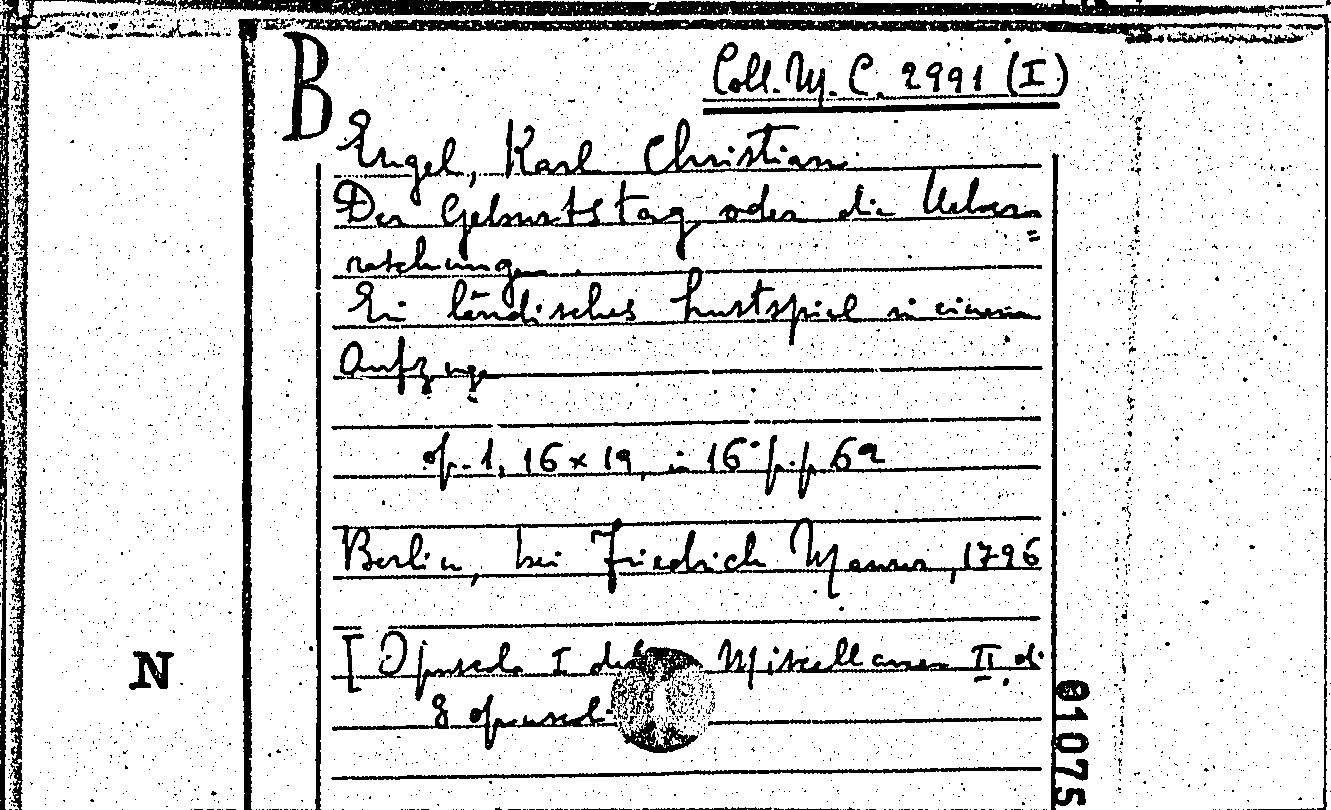 B
Coll. M. C. 2991 (I)
Engel, Karl Christian
Der Geburtstag oder die Ueber=
raschungen.
Ein ländisches Lustspiel in einem
Aufzug.
op. 1, 16 x 19, in 16° p. p. 62
Berlin, bei Friedrich Maurer, 1796
[Opuscolo I della Miscellanea II di
8 opuscoli
N
01075